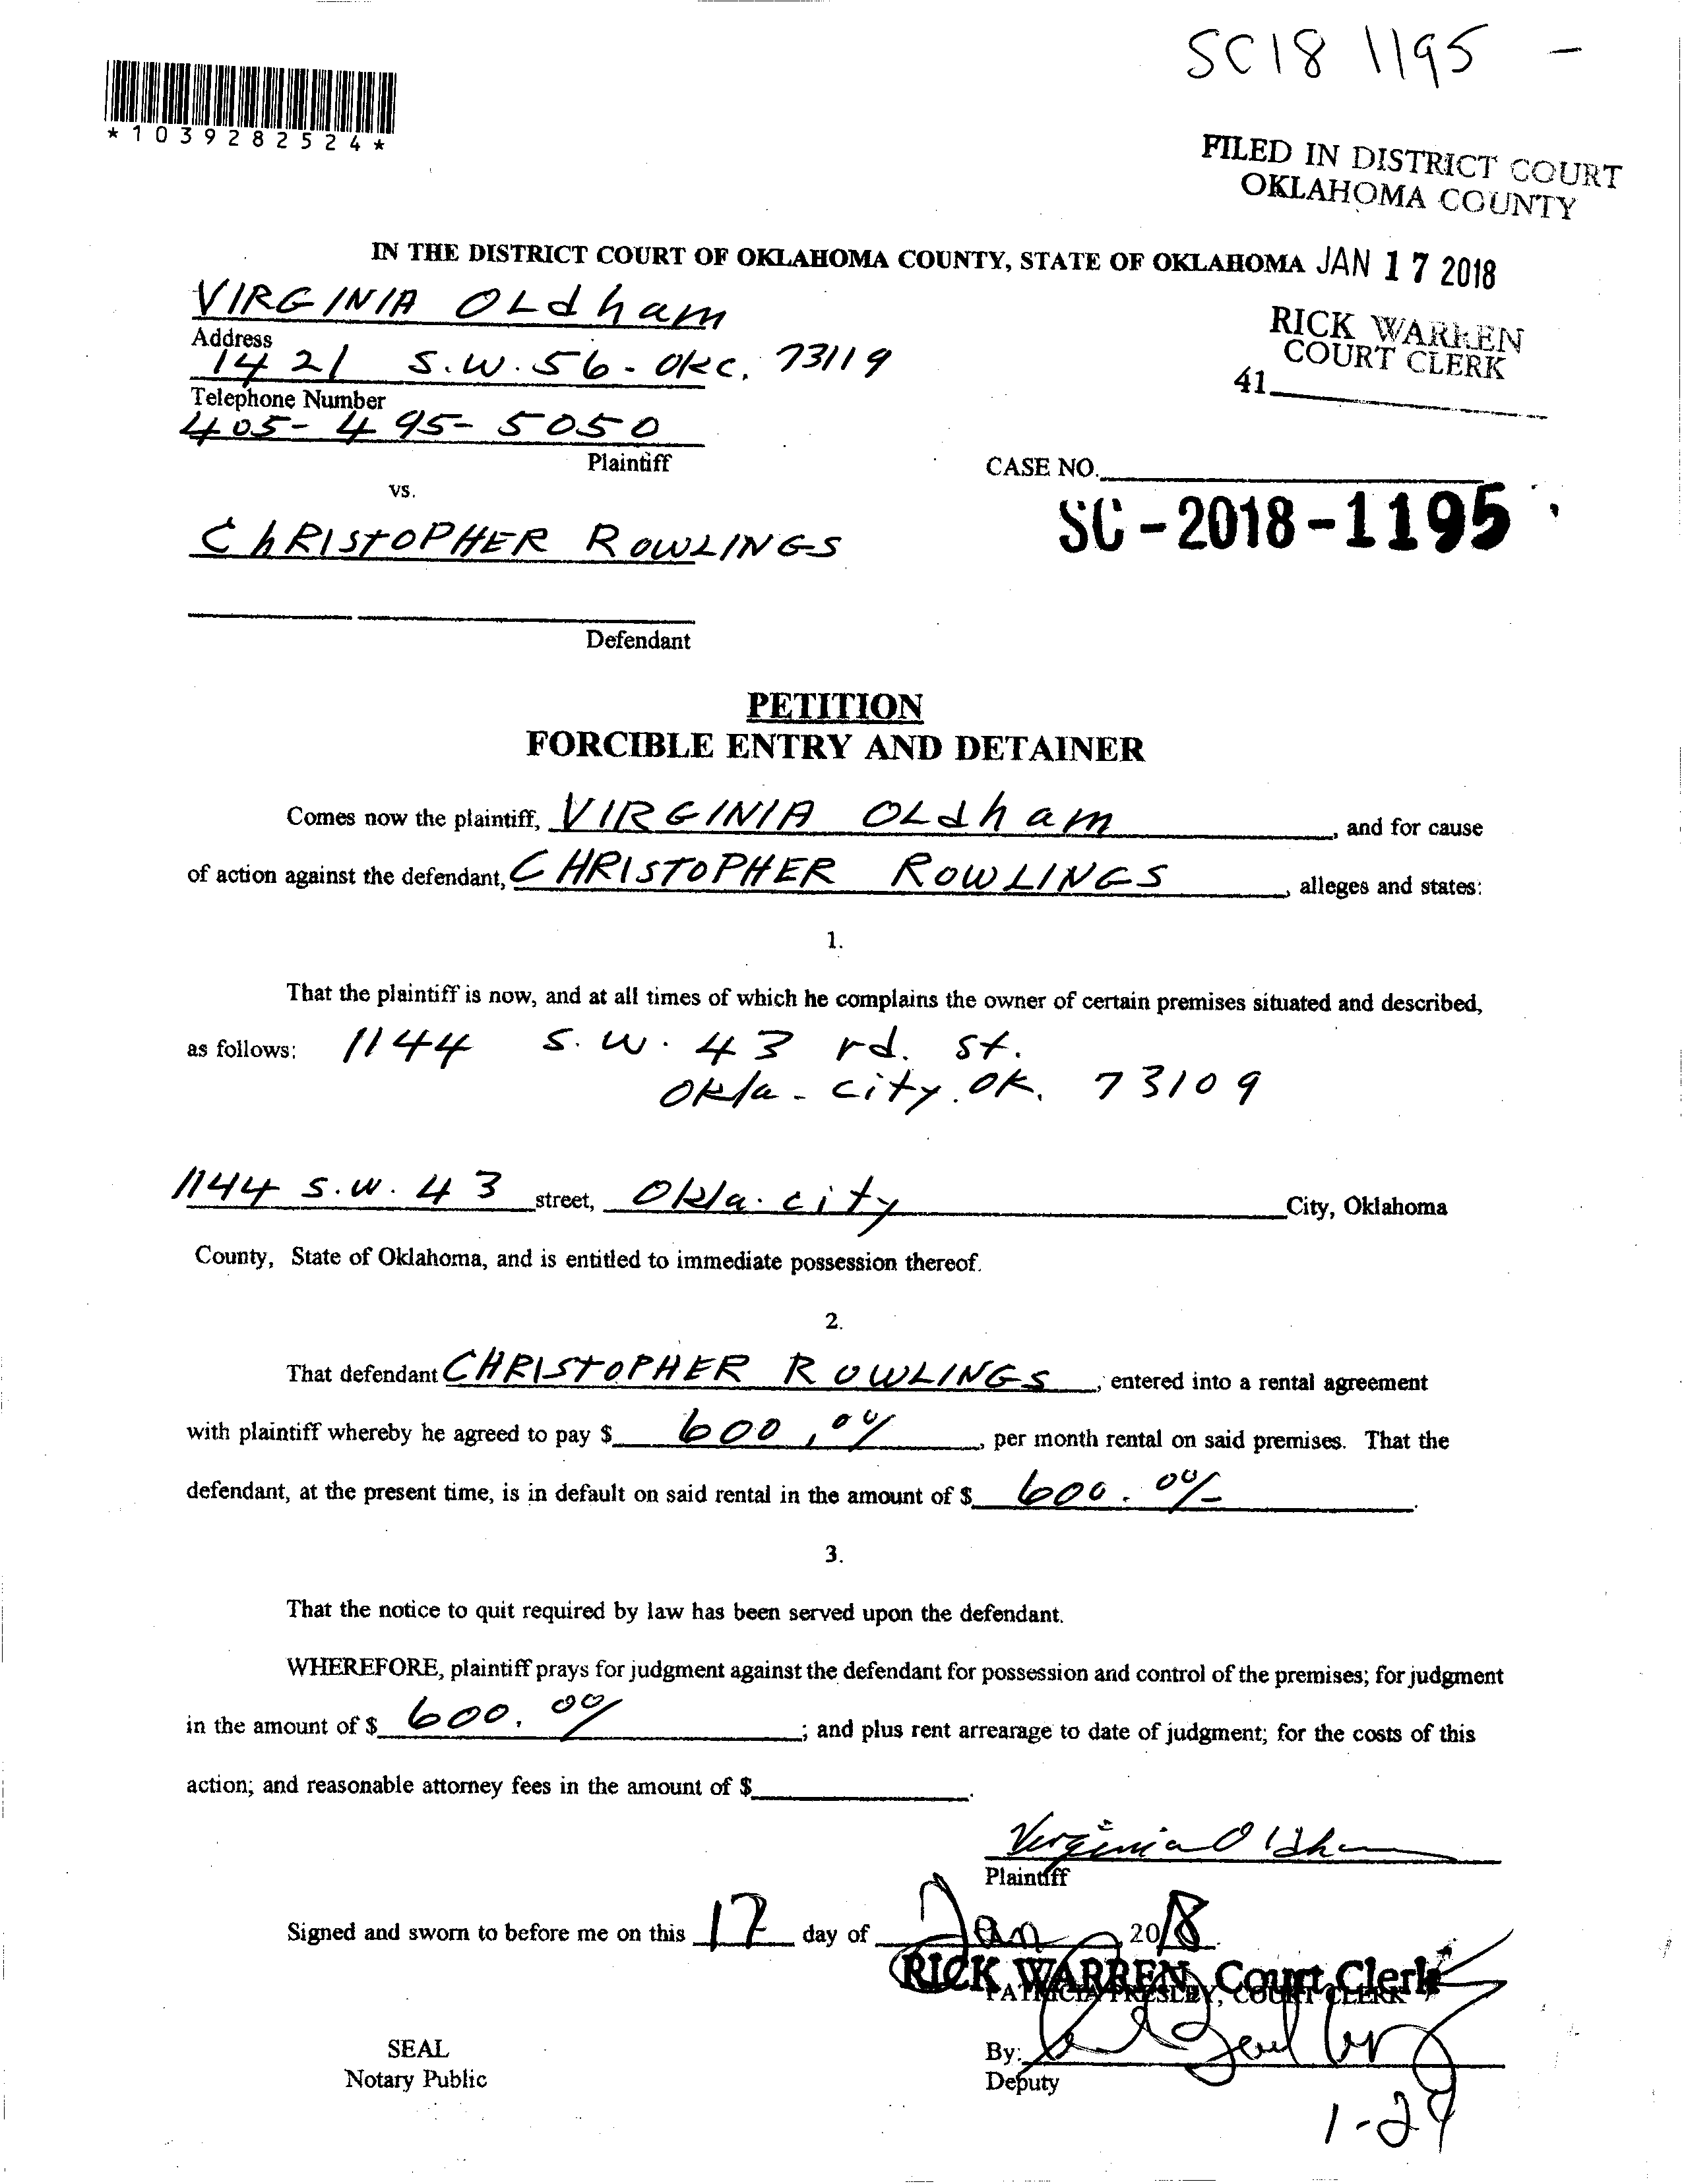 SC18 1195 -
*1039282524*
FILED IN DISTRICT COURT
OKLAHOMA COUNTY
IN THE DISTRICT COURT OF OKLAHOMA COUNTY, STATE OF OKLAHOMA JAN 17 2018
VIRGINIA OLdham
RICK WARREN
COURT CLERK
Address
1421 S.W. 56 - OKC. 73119
41
Telephone Number
405-495-5050
Plaintiff
CASE NO.
vs.
SC-2018-1195
ChRIStOPHER ROWLINGS
Defendant
PETITION
FORCIBLE ENTRY AND DETAINER
Comes now the plaintiff, VIRGINIA OLdham, and for cause
of action against the defendant, CHRISTOPHER ROWLINGS, alleges and states:
1.
That the plaintiff is now, and at all times of which he complains the owner of certain premises situated and described,
as follows: 1144 S.W. 43 rd. St.
Okla - city. OK. 73109
1144 S.W. 43 street, Okla. city City, Oklahoma
County, State of Oklahoma, and is entitled to immediate possession thereof.
2.
That defendant CHRIStOPHER ROWLINGS, entered into a rental agreement
with plaintiff whereby he agreed to pay $ 600.00/, per month rental on said premises. That the
defendant, at the present time, is in default on said rental in the amount of $ 600.00/-.
3.
That the notice to quit required by law has been served upon the defendant.
WHEREFORE, plaintiff prays for judgment against the defendant for possession and control of the premises; for judgment
in the amount of $ 600.00/; and plus rent arrearage to date of judgment; for the costs of this
action; and reasonable attorney fees in the amount of $.
Virginia Oldham
Plaintiff
Signed and sworn to before me on this 17 day of Jan, 2018.
RICK WARREN, Court Clerk
PATRICIA PRESLEY, COURT CLERK
SEAL
By:
Notary Public
Deputy
1-29